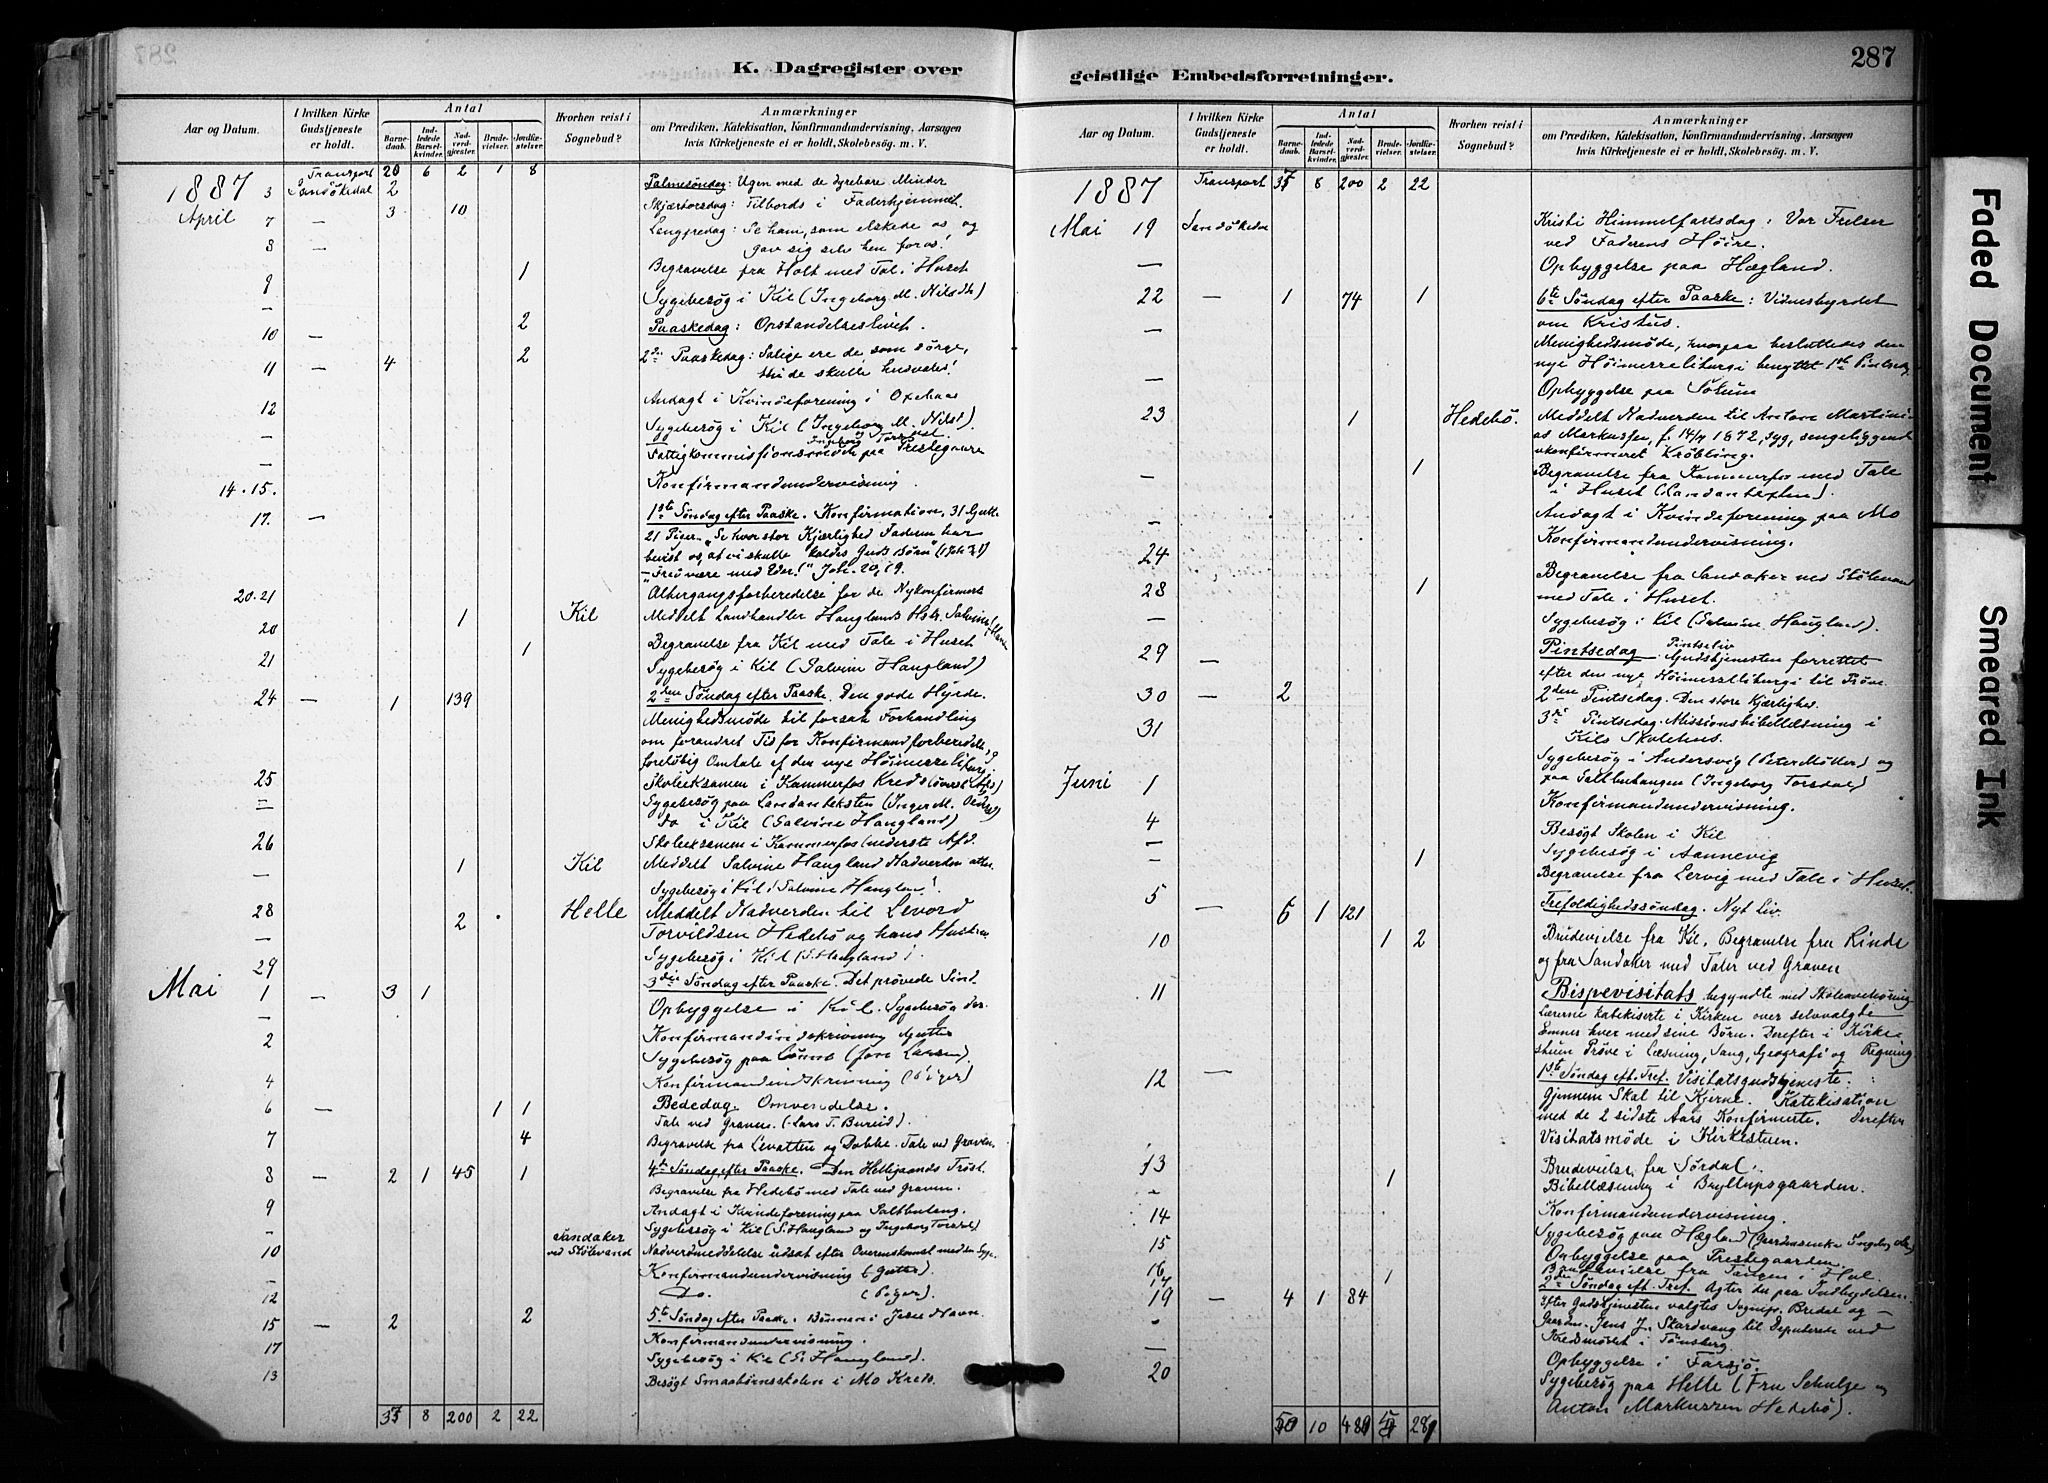 287
K. Dagregister over
Aar og Datum.
I hvilken Kirke Gudstjeneste er holdt.
Antal
Barnedaab.
Indledede Barselkvinder.
Nadverdgjester.
Brudevielser.
Jordfæstelser.
Hvorhen reist i Sognebud?
Anmærkninger
om Prædiken, Katekisation, Konfirmandundervisning, Aarsagen
hvis Kirketjeneste ei er holdt, Skolebesøg. m. V.
Transport 20 6 2 1 8
1887 3 Sandökedal 2 Palmesöndag: Ugen med de dyrebare Minder
April 7 — 3 10 Skjærtorsdag: Tilbords i Faderhjemmet.
8 — Langfredag: Se ham, som elskede os, og
gav sig selv hen for os!
9 1 Begravelse fra Holt med Tale i Huset
— Sygebesøg i Kil (Ingeborg M. Nilsdt)
10 — 2 Paaskedag: Opstandelseslivet.
11 — 4 2 2den Paaskedag: Salige ere de, som sörge,
thi de skulle husvales!
12 Andagt i Kvindeforening i
— Sygebesøg i Kil (Ingeborg M. Nilsd).
— Fattigkommissionsmöde paa Prestegaard
14.15. Konfirmandundervisning.
17. — 1ste Søndag efter Paaske. Konfirmation, 31 Gutter
21 Piger. "Se hvor stor Kjærlighed Faderen har
bevist os, at vi skulle kaldes Guds Börn" (1 Joh 3,1)
— "Fred være med Eder!" Joh. 20,19.
20.21 Altergangsforberedelse for de Nykonfirmerte
20 1 Kil Meddelt Landhandler Hauglands Hstr. Salvine
21 1 Begravelse fra Kil med Tale i Huset
Sygebesøg i Kil (Salvine Haugland)
24 — 1 139 2den Søndag efter Paaske. Den gode Hyrde.
Menighedsmöde til forsat Forhandling
om forandret Tid for Konfirmandforberedelse,
foreløbig Omtale af den nye Höimesseliturgi
25 Skoleeksamen i Kammerfos Kreds (överst Afd)
= Sygebesøg paa Landanteksten (Inger M.
Do i Kil (Salvine Haugland)
26 Skoleeksamen i Kammerfos (nederste Afd.
— 1 Kil Meddelt Salvine Haugland Nadverden atter
Sygebesøg i Kil (Salvine Haugland).
28 2 Helle Meddelt Nadverden til Levord
— Torvildsen Hedebö og hans Hustru.
29 Sygebesøg i Kil (S. Haugland).
Mai 1 — 3 1 3die Søndag efter Paaske. Det prövede Sind.
— Opbyggelse i Kil. Sygebesøg der.
2 Konfirmandindskrivning Gutter
Sygebesøg paa (Jon Larsen).
4 Konfirmandindskrivning (Piger)
6 — 1 1 Bededag. Omvendelse.
Tale ved Graven. (Lars T. Bureid).
7 4 Begravelse fra Levatten og Dobbe. Tale ved Graven.
8 — 2 1 45 1 4de Søndag efter Paaske. Den Helligaands Tröst.
Begravelse fra Hedebö med Tale ved Graven.
9 Andagt i Kvindeforening paa Saltbutang.
— Sygebesøg i Kil (S. Haugland og Ingeborg Torsdal)
10 Sandaker ved Stölevand Nadverdmeddelelse udsat efter Overenskomst med den Syge.
— Konfirmandundervisning (Gutter).
12 Do. (Piger).
15 — 2 2 5te Søndag efter Paaske. Bönnen i Jesu Navn.
17 Konfirmandundervisning.
Sygebesøg i Kil (S. Haugland).
13 Besögt Smaabörnsskolen i Mo Kreds.
37 8 200 2 22
geistlige Embedsforretninger.
287
Aar og Datum.
I hvilken Kirke Gudstjeneste er holdt.
Antal
Barnedaab.
Indledede Barselkvinder.
Nadverdgjester.
Brudevielser.
Jordfæstelser.
Hvorhen reist i Sognebud?
Anmærkninger
om Prædiken, Katekisation, Konfirmandundervisning, Aarsagen
hvis Kirketjeneste ei er holdt, Skolebesøg. m. V.
1887 Transport 37 8 200 2 22
Mai 19 Sandökedal Kristi Himmelfartsdag: Vor Frelser
ved Faderens Höire.
— Opbyggelse paa Hægland.
22 — 1 74 1 6te Søndag efter Paaske: Vidnesbyrdet
om Kristus.
— Menighedsmöde, hvorpaa besluttedes den
nye Höimesseliturgi benyttet 1ste Pintsedag
— Opbyggelse paa Sökum
23 1 Hedebö. Meddelt Nadverden til Anton Martini-
us Markussen, f. 14/7 1872, syg, sengeliggende
ukonfirmeret Kröbling.
— 1 Begravelse fra Kammerfos med Tale
i Huset (Landanteksten).
— Andagt i Kvindeforening paa Mo
24 Konfirmandundervisning.
28 1 Begravelse fra Sandaker ved Stölevand
med Tale i Huset.
— Sygebesøg i Kil (Salvine Haugland).
29 — Pintsedag. Pintseliv Gudstjenesten forrettet
efter den nye Höimesseliturgi til Pröve.
30 — 2 2den Pintsedag. Den store Kjærlighed.
31 3die Pintsedag. Missionsbibellæsning i
Kils Skolehus.
Juni 1 Sygebesøg i Andersvig (Peter Möller) og
paa Saltbutangen (Ingeborg Torsdal)
4 Konfirmandundervisning.
— Besögt Skolen i Kil
— Sygebesøg i Aannevig
1 Begravelse fra Lervig med Tale i Huset.
5 — 6 1 121 Trefoldighedssöndag. Nyt Liv.
10 1 2 Brudevielse fra Kil, Begravelse fra Rinde
og fra Sandaker med Taler ved Graven
11 Bispevisitats begyndte med Skoleavhöring
Lærerne katekiserte i Kirken over selvvalgte
Emner hver med sine Börn. Derefter i Kirke-
stuen Pröve i Læsning, Sang, Geografi og Regning
12 — 1ste Søndag eft. Tref. Visitatsgudstjeneste.
Gjennem Skal til Kjerne. Katekisation
med de 2 sidste Aars Konfirmerte. Derefter
Visitatsmöde i Kirkestuen.
13 1 Brudevielse fra Sördal.
— Bibellæsning i Bryllupsgaarden.
14 Konfirmandundervisning.
15 Sygebesøg paa Hægland (Gaardmandsenke Ingeborg
16 Opbyggelse paa Prestegaarden.
17 1 Brudevielse fra Tangen i Hol.
19 — 4 1 84 2den Søndag eft. Tref. Agter du paa Indbydelsen.
— Efter Gudstjenesten valgtes Sognepr. Bredal og
Gaardm. Jens J. Skardvang til Deputerede ved
Kredsmödet i Tönsberg.
— Opbyggelse i Farsjö.
20 Sygebesøg paa Helle (Fru Schulze og
Anton Markussen Hedebö).
50 10 480 5 28
Faded Document
Smeared Ink